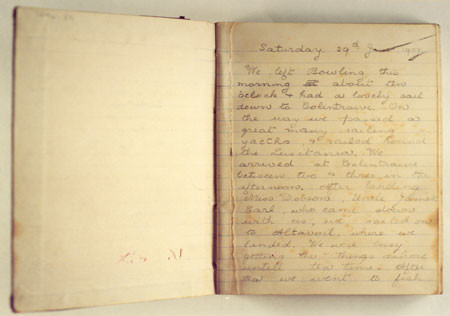 Saturday 29th
We left Bowling this
morning at about ten
o'clock & had a lovely sail
down to Colintraive. On
the way we passed a
great many sailing
yacths, & sailed round
the Lusitania. We
arrived at Colintraive
between two & three in the
afternoon. After landing
Miss Dobson, Uncle James
Earl, who came down
with us, we sailed on
to Altavoil, where we
landed. We were busy
getting the things ashore
untill tea time. After
tea we went to fish